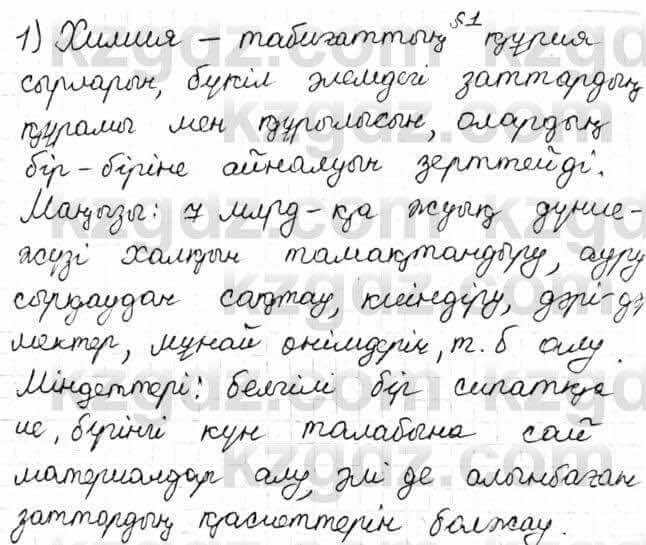 §1
1) Химия – табиғаттың құпия
сырларын, бүкіл әлемдегі заттардың
құрамы мен құрылысын, олардың
бір-біріне айналуын зерттейді.
Маңызы: 7 млрд-қа жуық дүние-
жүзі халқын тамақтандыру, ауру
сырқаудан сақтау, киіндіру, дәрі-дә
мектер, мұнай өнімдерін, т.б алу.
Міндеттері: белгілі бір сипатқа
ие, бүгінгі күн талабына сай
материалдар алу, әлі де алынбаған
заттардың қасиеттерін болжау.